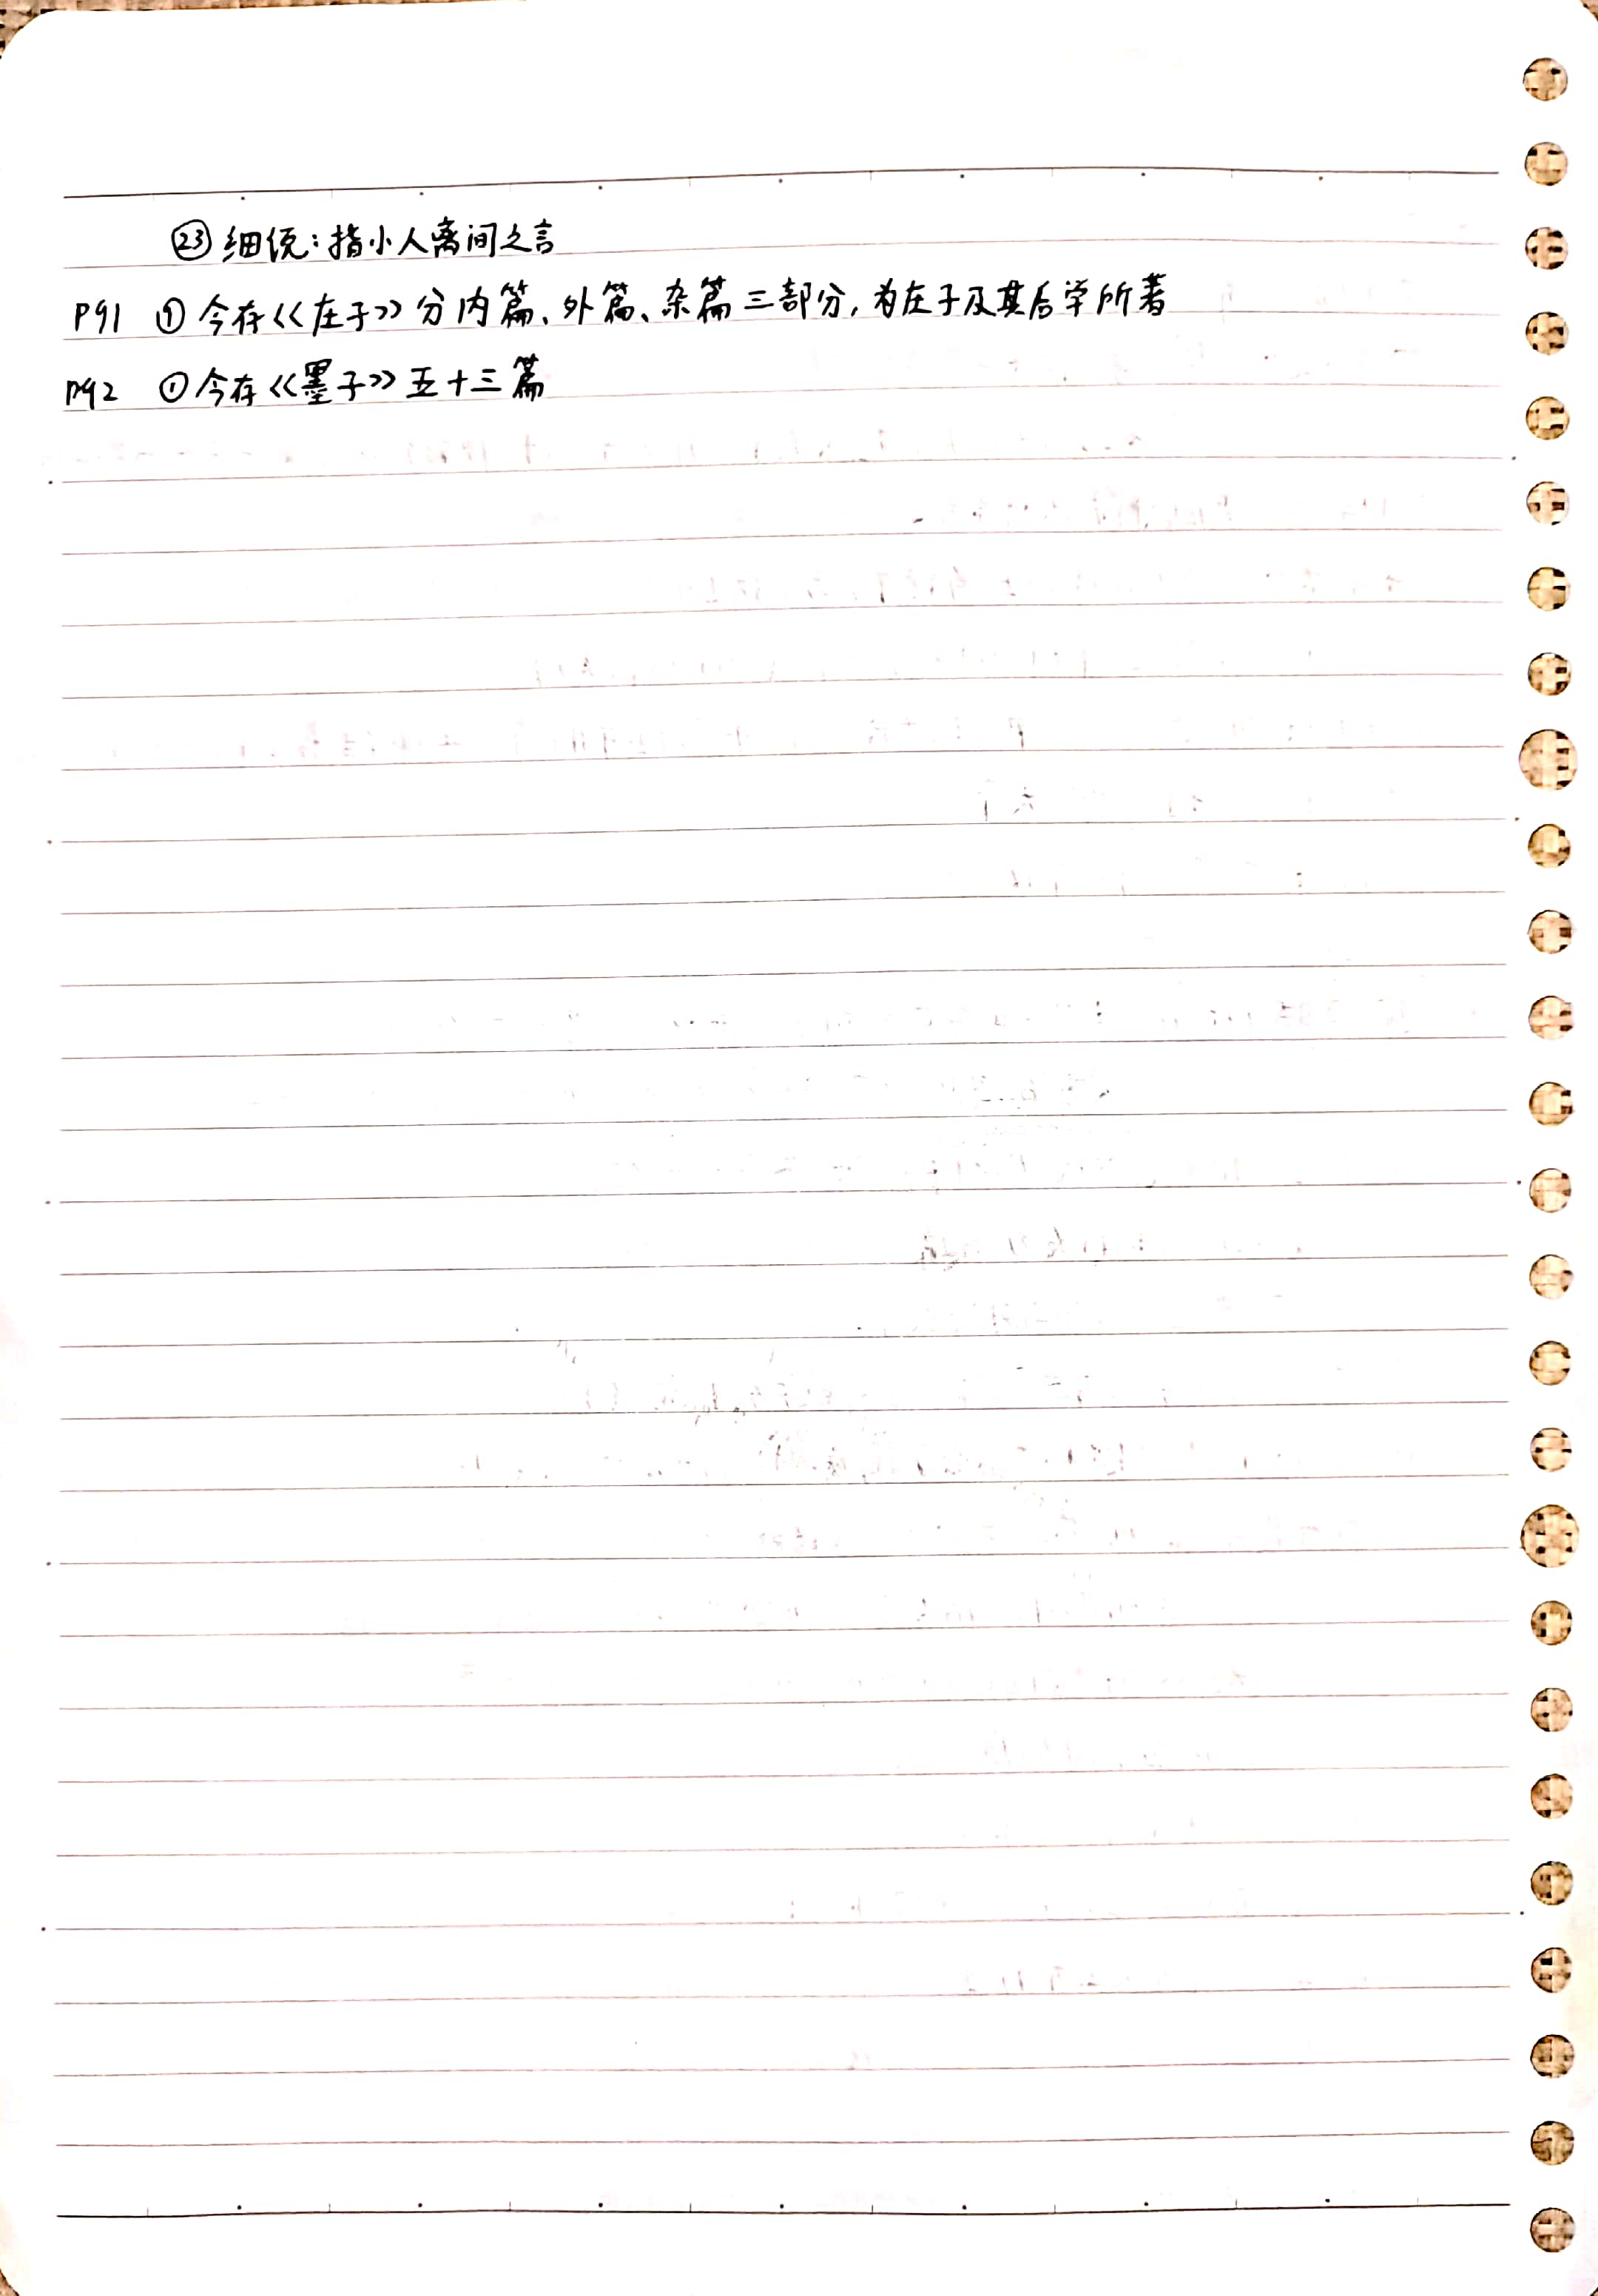 ㉓ 细说：指小人离间之言
P91 ① 今存《庄子》分内篇、外篇、杂篇三部分，为庄子及其后学所著
P92 ① 今存《墨子》五十三篇